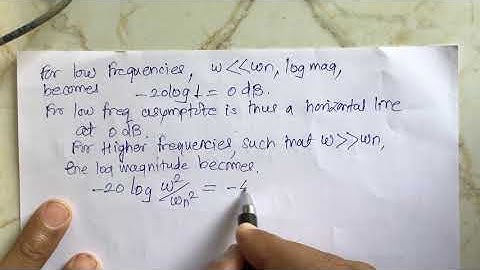 For low frequencies, w<<wn, log mag,
becomes -20log1 = 0 dB.
For low freq asymptote is thus a horizontal line
at 0 dB.
For Higher frequencies, such that w>>wn,
the log magnitude becomes.
-20 log w²/wn² = -4